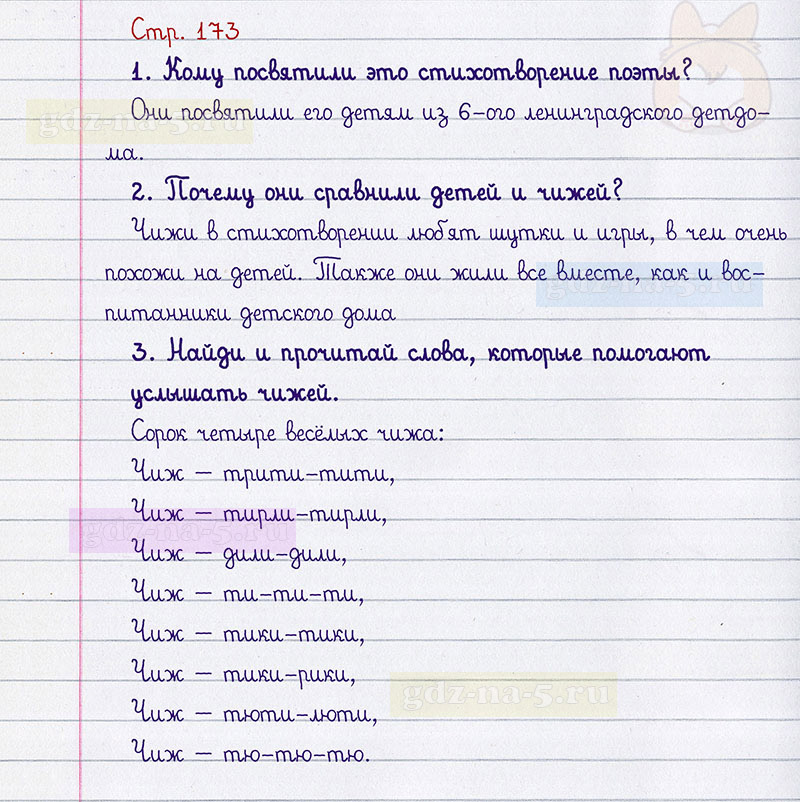 Стр. 173
1. Кому посвятили это стихотворение поэты?
Они посвятили его детям из 6-ого ленинградского детдо-
gdz-na-5.ru
ма.
2. Почему они сравнили детей и чижей?
Чижи в стихотворении любят шутки и игры, в чем очень
похожи на детей. Также они жили все вместе, как и вос-
gdz-na-5.ru
питанники детского дома
3. Найди и прочитай слова, которые помогают
услышать чижей.
Сорок четыре весёлых чижа:
Чиж – трити-тити,
Чиж – тирли-тирли,
gdz-na-5.ru
Чиж – дили-дили,
Чиж – ти-ти-ти,
Чиж – тики-тики,
Чиж – тики-рики,
gdz-na-5.ru
Чиж – тюти-люти,
Чиж – тю-тю-тю.